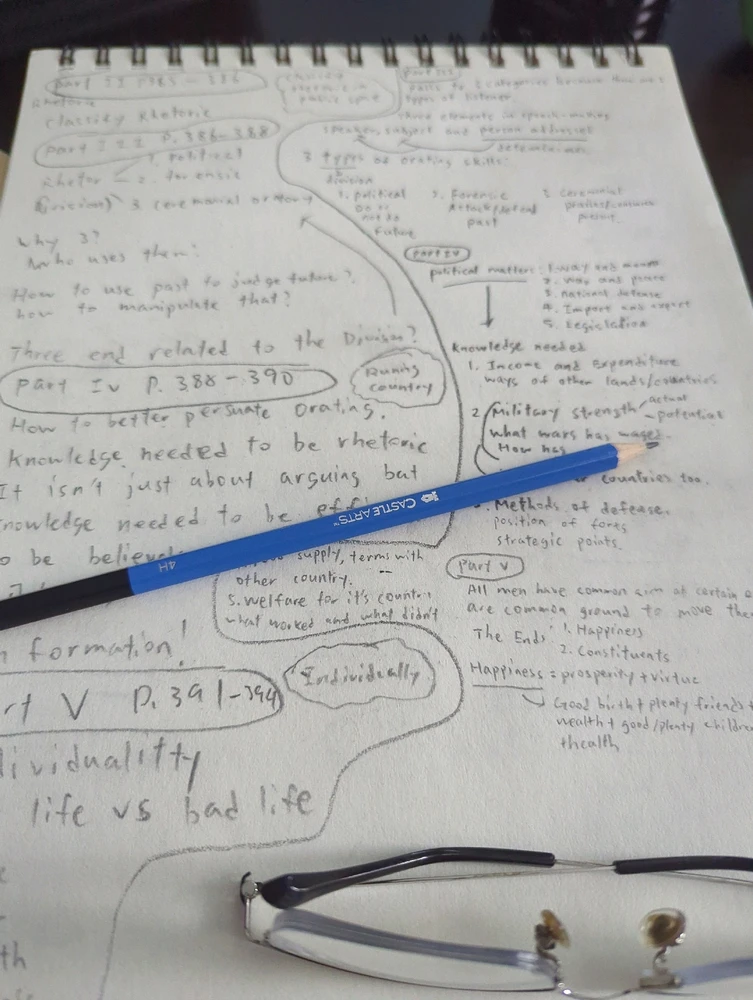 part II P385 - 386
Rhetoric
Classify Rhetoric
part III P. 386-388
1. Political
Rhetor 2. Forensic
(Division) 3 ceremonial oratory
Why 3?
Who uses them?
How to use past to judge future?
how to manipulate that?
Three end related to the Division?
Part IV P. 388 - 390
Runing
country
How to better persuate orating.
Knowledge needed to be rhetoric
It isn't just about arguing but
knowledge needed to be
to be
formation!
V P. 391-394
Individually
life vs bad life
part III
types of listener.
Three elements in speech-making
speaker, subject and person addressed
determines
3 types of orating skills:
division
1. political
Do or
not do
Future
2. Forensic
Attack/defend
past
3. Ceremonial
present.
part IV
political matters: 1. way and means
2. War and peace
3. National defense
4. Import and export
5. Legislation
Knowledge needed
1. Income and Expenditure
ways of other lands/countries
2 Military strength actual
potential
what wars has waged.
How has
countries too.
3. Methods of defease.
position of forts
strategic points.
supply, terms with
other country.
5. welfare for it's
what worked and what didn't
Part V
All men have common aim at certain
are common ground to move
The Ends: 1. Happiness
2. Constituents
Happiness = prosperity + virtue
Good birth + plenty friends +
wealth + good/plenty children
+health
CASTLE ARTS™
4H